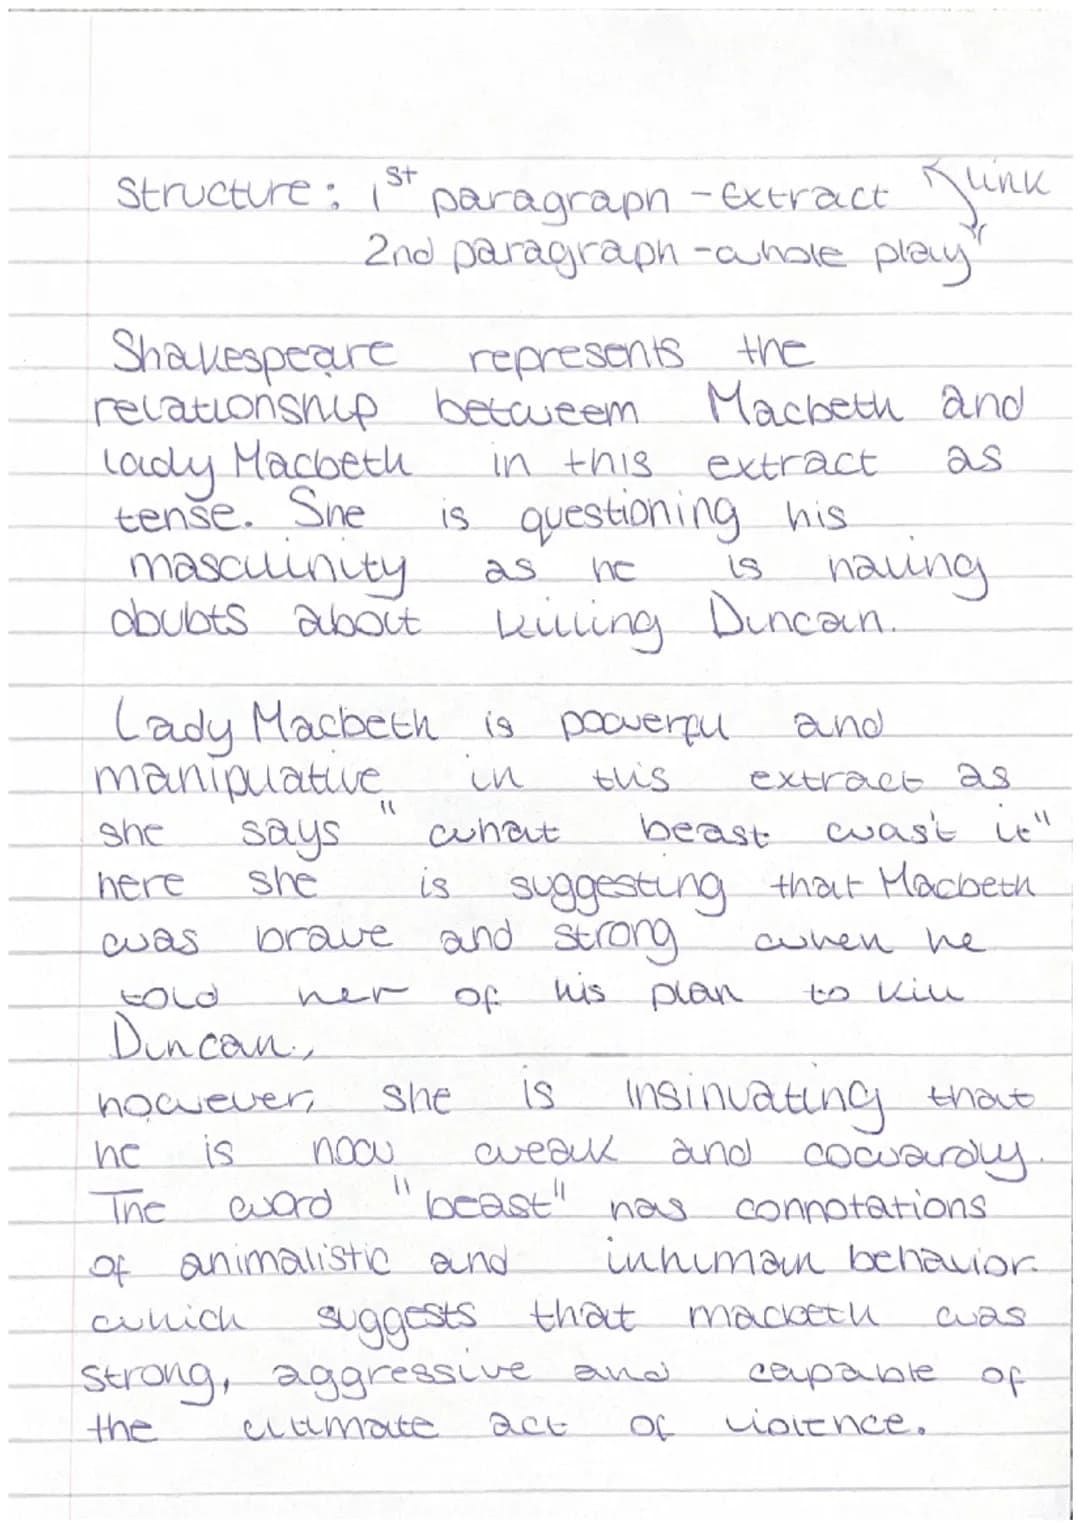 Structure: 1st paragraph - Extract link
2nd paragraph - whole play
Shakespeare represents the
relationship betweem Macbeth and
Lady Macbeth in this extract as
tense. She is questioning his
masculinity as he is having
doubts about killing Duncan.
Lady Macbeth is powerfu and
manipuative in this extract as
she says "what beast was't it"
here she is suggesting that Macbeth
was brave and strong when he
told her of his plan to kill
Duncan.,
however, she is insinuating that
he is now weak and cowardly.
The word "beast" has connotations
of animalistic and inhuman behavior.
which suggests that macbeth was
strong, aggressive and capable of
the ultimate act of violence.